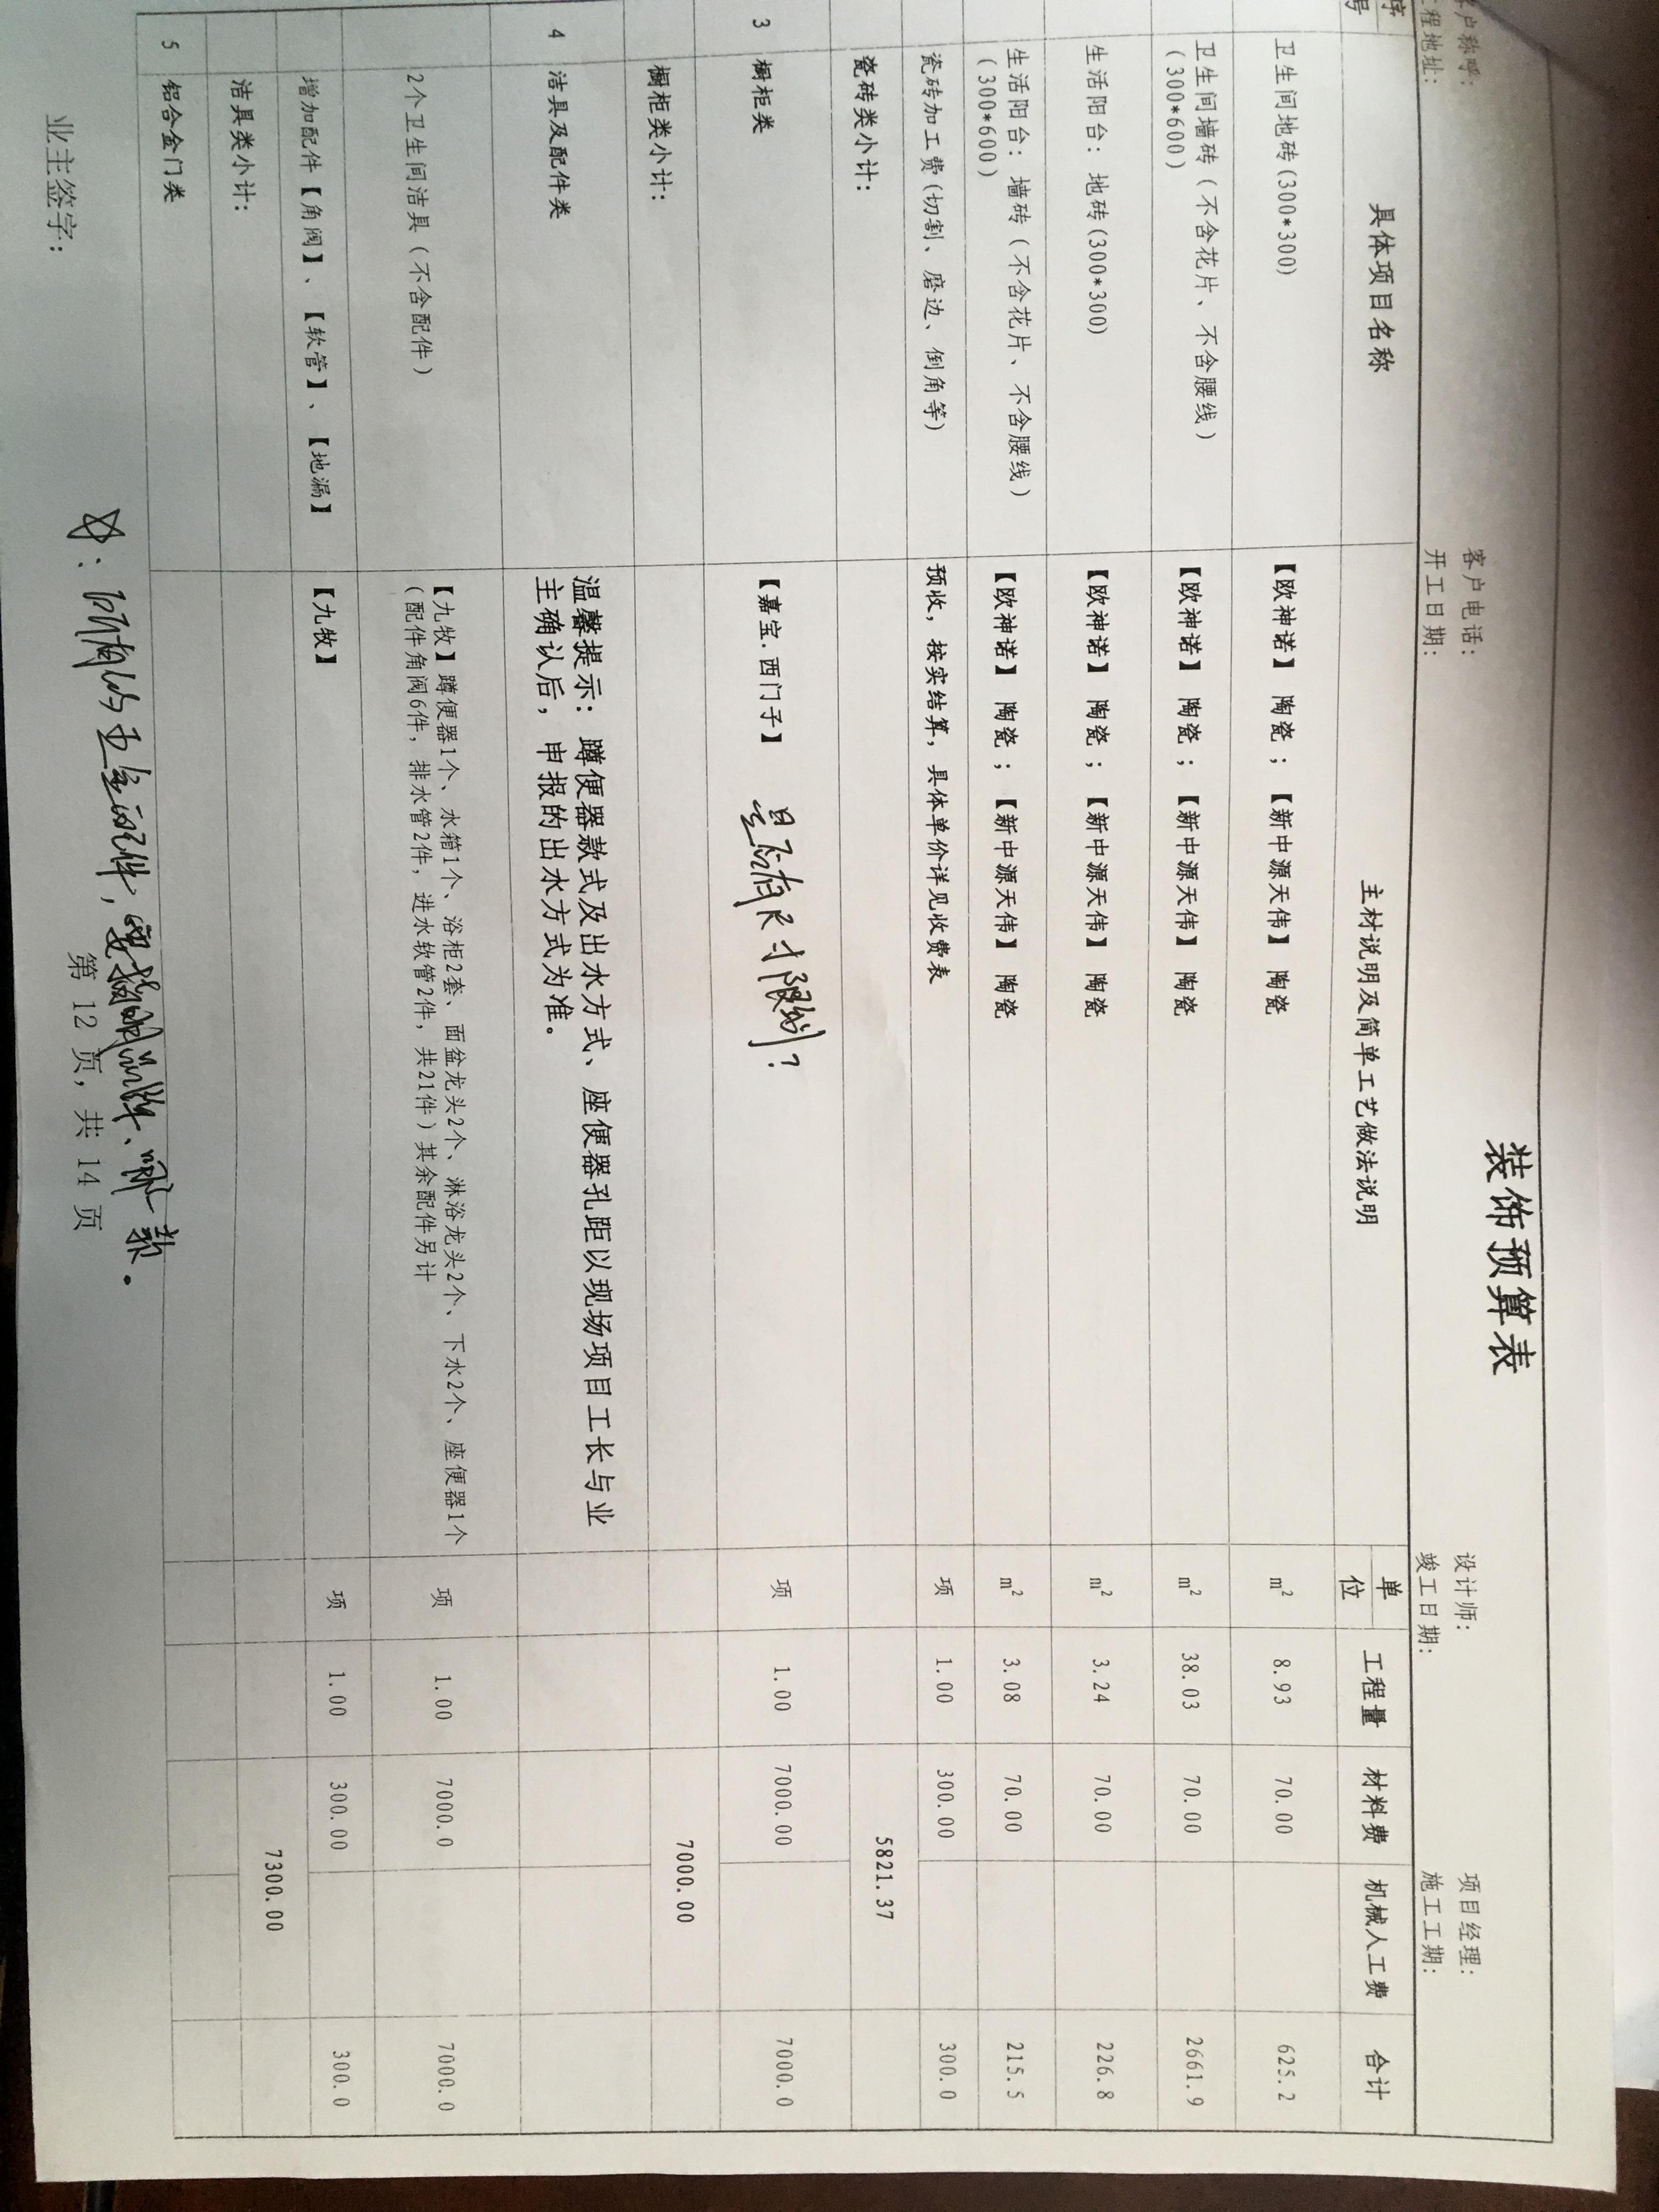 装饰预算表
客户称呼: 客户电话: 设计师: 项目经理:
工程地址: 开工日期: 竣工日期: 施工工期:
序号 具体项目名称 主材说明及简单工艺做法说明 单位 工程量 材料费 机械人工费 合计
卫生间地砖(300*300) 【欧神诺】 陶瓷；【新中源天伟】 陶瓷 m² 8.93 70.00 625.2
卫生间墙砖（不含花片、不含腰线）
（300*600） 【欧神诺】 陶瓷；【新中源天伟】 陶瓷 m² 38.03 70.00 2661.9
生活阳台: 地砖(300*300) 【欧神诺】 陶瓷；【新中源天伟】 陶瓷 m² 3.24 70.00 226.8
生活阳台: 墙砖（不含花片、不含腰线）
（300*600） 【欧神诺】 陶瓷；【新中源天伟】 陶瓷 m² 3.08 70.00 215.5
瓷砖加工费(切割、磨边、倒角等) 预收，按实结算，具体单价详见收费表 项 1.00 300.00 300.0
瓷砖类小计: 5821.37
3 橱柜类 【嘉宝.西门子】 是否有尺寸限制？ 项 1.00 7000.00 7000.0
橱柜类小计: 7000.00
4 洁具及配件类 温馨提示: 蹲便器款式及出水方式、座便器孔距以现场项目工长与业
主确认后，申报的出水方式为准。
2个卫生间洁具（不含配件） 【九牧】蹲便器1个、水箱1个、浴柜2套、面盆龙头2个、淋浴龙头2个、下水2个、座便器1个
（配件角阀6件，排水管2件，进水软管2件，共21件）其余配件另计 项 1.00 7000.0 7000.0
增加配件【角阀】、【软管】、【地漏】 【九牧】 项 1.00 300.00 300.0
洁具类小计: 7300.00
5 铝合金门类
☆: 所有的五金配件，要指明品牌、哪一款。
业主签字: 第 12 页，共 14 页